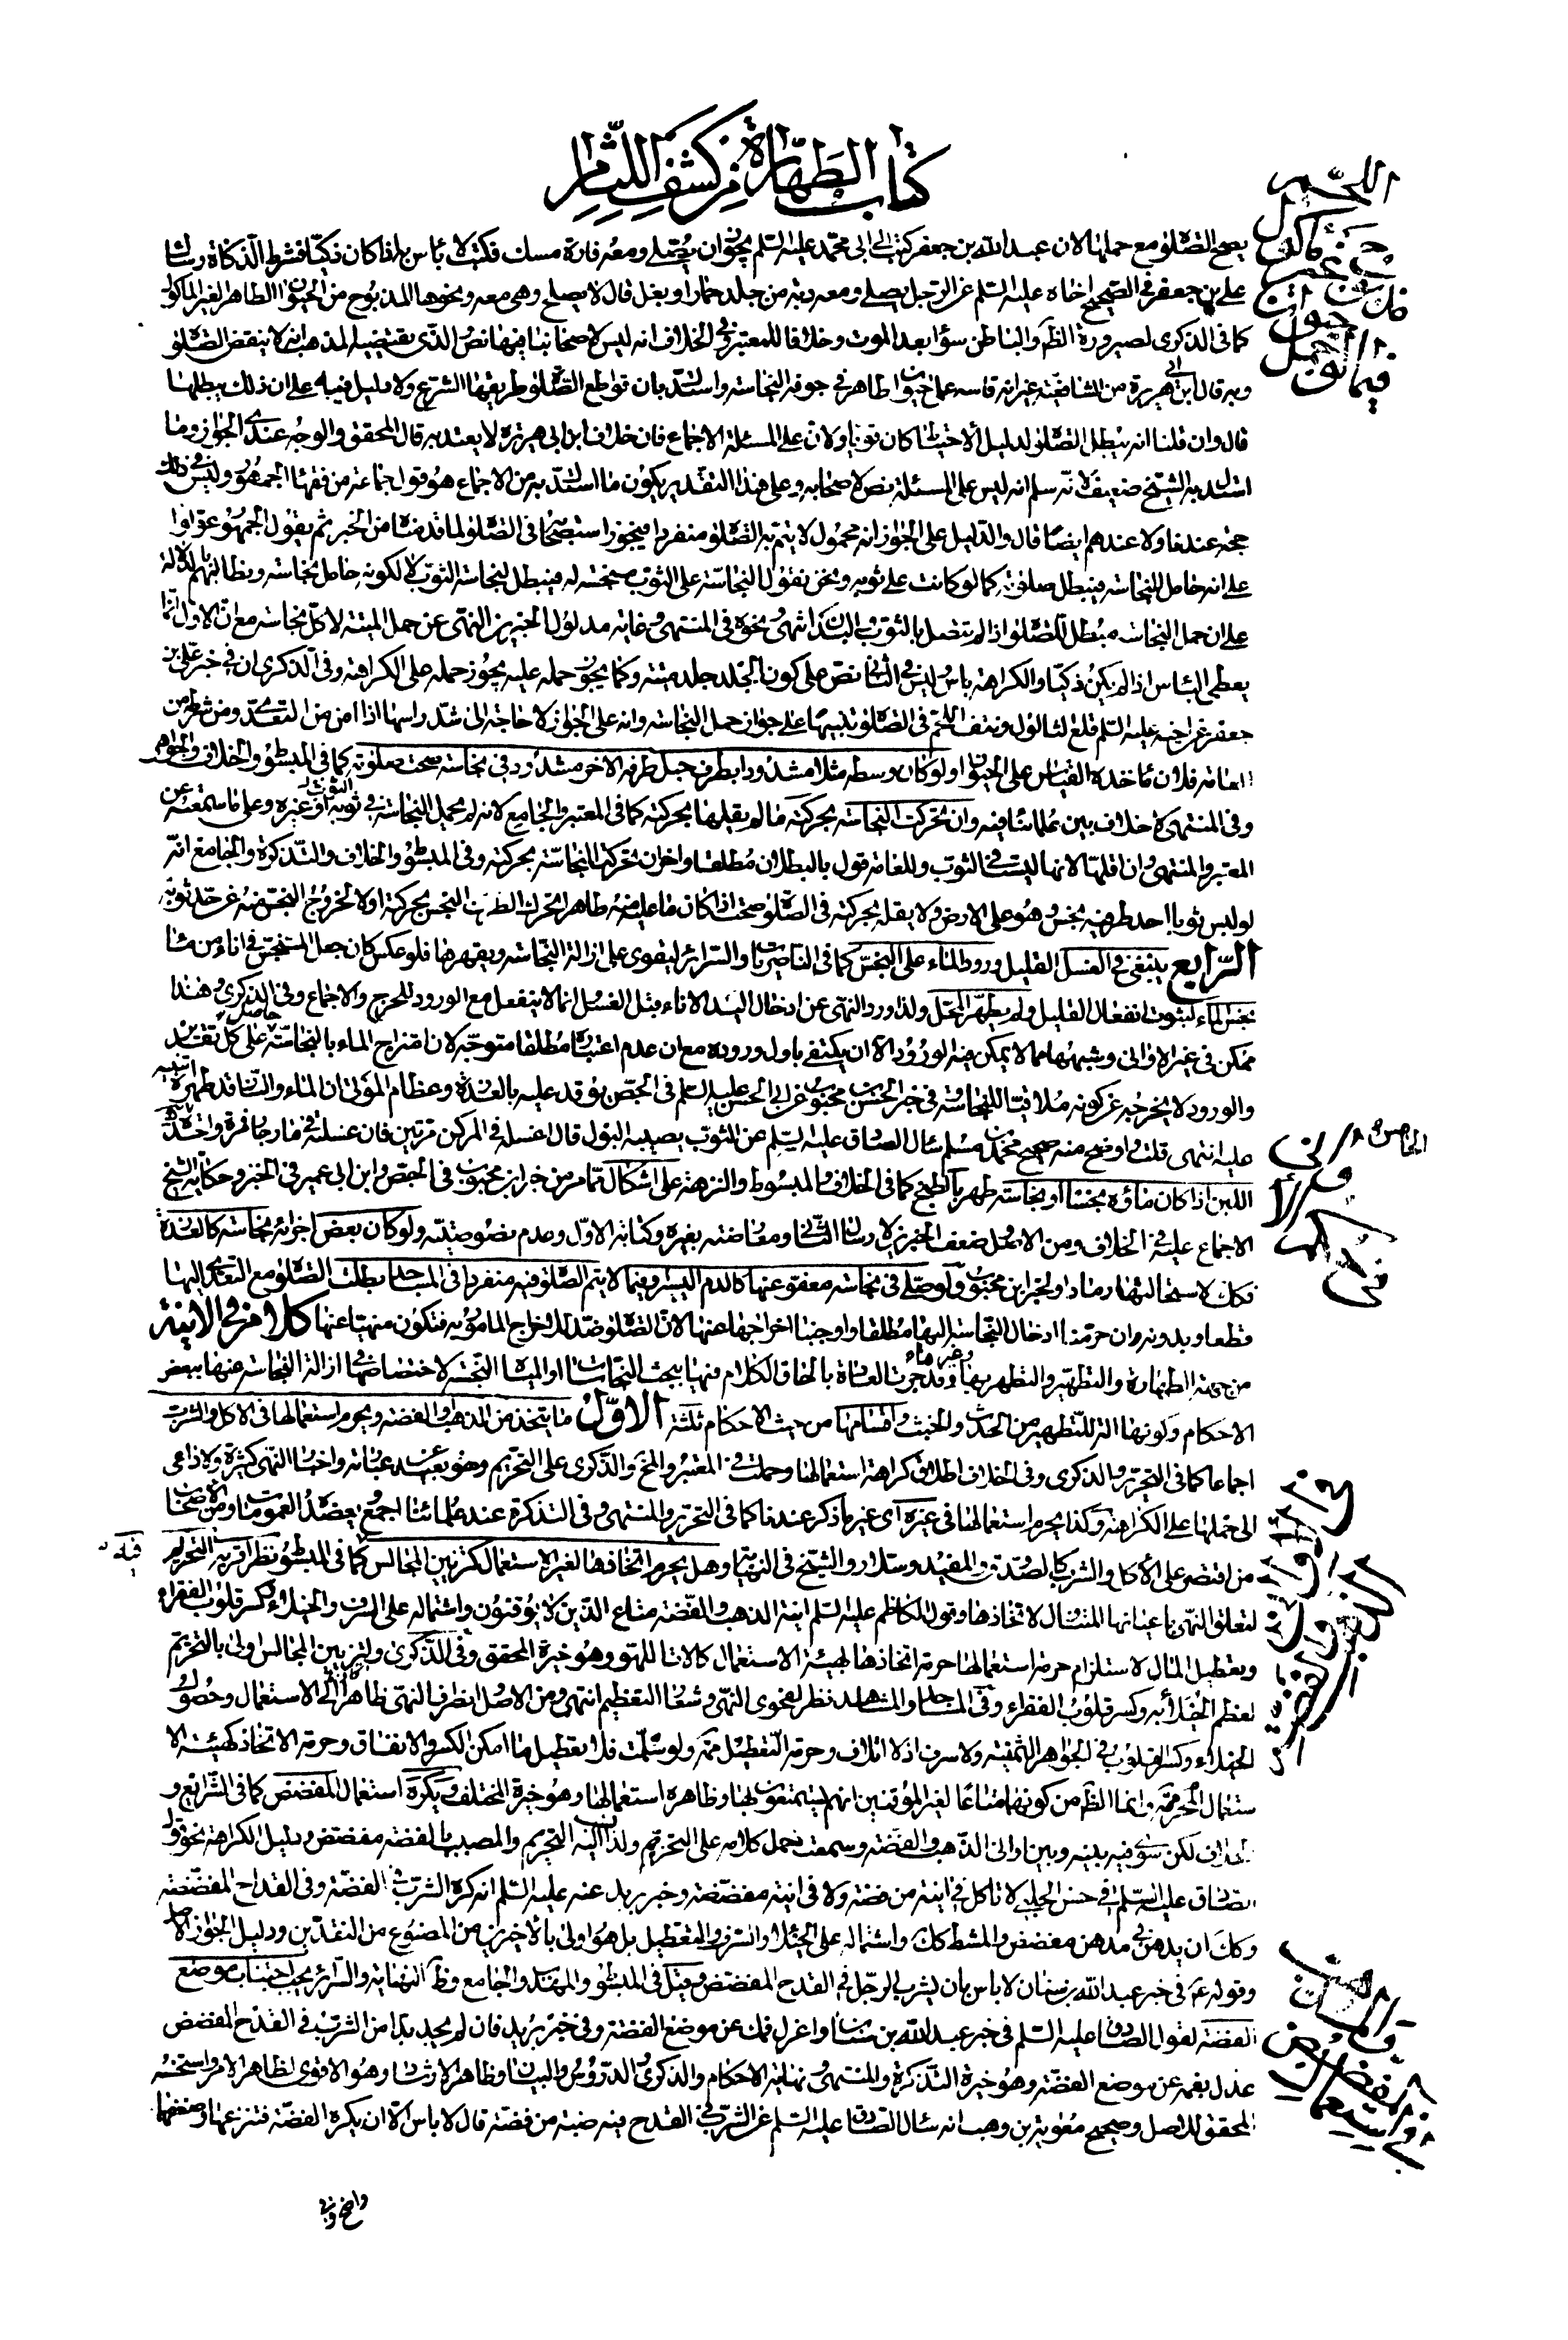 كتاب الطهارة من كشف اللثام
يصح الصلوة مع حملها لان عبد الله بن جعفر كتب الى ابى محمد عليه السلم يجوز ان يصلى ومعه فارة مسك فكتب لا باس به اذا كان ذكيا فشرط الذكاة وسال
على بن جعفر فى الصحيح اخاه عليه السلم عن الرجل يصلى ومعه دبة من جلد حمار او بغل قال لا يصلح وهى معه ونحوها المذبوح من الحيوان الطاهر الغير الماكول
كما فى الذكرى لصيرورة الظاهر والباطن سواء بعد الموت وخلافا للمعتبر وفى الخلاف انه ليس لاصحابنا فيها نص الذى يقتضيه المذهب انه لا ينقض الصلوة
وبه قال ابن ابى هريرة من الشافعية غير انه قاسه على حيوان طاهر فى جوفه النجاسة واستدل بان قواطع الصلوة طريقها الشرع ولا دليل فيه على ان ذلك يبطلها
قال وان قلنا انه يبطل الصلوة لدليل الاحتياط كان قويا ولان على المسئلة الاجماع فان خلاف ابن ابى هريرة لا يعتد به قال المحقق والوجه عندى الجواز وما
استدل به الشيخ ضعيف لانه سلم انه ليس على المسئلة نص لاصحابه وعلى هذا التقدير يكون ما استدل به من الاجماع هو قول جماعة من فقهاء الجمهور وليس فى ذلك
حجة عندنا ولا عندهم ايضا قال والدليل على الجواز انه محمول لا يتم به الصلوة منفردا فيجوز استصحابه فى الصلوة لما قدمنا من الخبر ثم يقول الجمهور عولوا
على انه حامل للنجاسة فيبطل صلوته كما لو كانت على ثوبه ونحن نقول النجاسة على الثوب منجسة له فيبطل لنجاسة الثوب لا لكونه حامل نجاسة ويطالبهم بالدلالة
على ان حمل النجاسة مبطل للصلوة اذا لم يتصل بالثوب والبدن انتهى ونحوه فى المنتهى وغاية مدلول الخبرين النهى عن حمل الميتة لا كل نجاسة مع ان الاول انما
يعطى الباس اذا لم يكن ذكيا والكراهة باس وليس فى الثانى نص على كون الجلد جلد ميتة وكما يجوز حمله عليه يجوز حمله على الكراهة وفى الذكرى ان فى خبر على بن
جعفر عن اخيه عليه السلم قلع الثالول ونتف اللحم فى الصلوة تنبيها على جواز حمل النجاسة وانه على الجواز لا حاجة الى شد راسها اذا امن من التعدى ومن شرط من
العامة فلان ماخذه القياس على الحيوان ولو كان وسطه مثلا مشدودا بطرف حبل طرفه الاخر مشدود فى نجاسة صحت صلوته كما فى المبسوط والخلاف والجواهر
وفى المنتهى لا خلاف بين علمائنا فيه وان تحركت النجاسة بحركته ما لم يقلها بحركته كما فى المعتبر والجامع لانه لم يحمل النجاسة فى ثوبه او غيره وعلى ما سمعته عن
المعتبر والمنتهى وان اقلها لانها ليست فى الثوب وللعامة قول بالبطلان مطلقا واخر ان تحركت النجاسة بحركته وفى المبسوط والخلاف والتذكرة والجامع انه
لو لبس ثوبا احد طرفيه نجس وهو على الارض ولا يقله بحركته فى الصلوة صحت اذا كان ما عليه منه طاهرا تحرك الطرف النجس بحركته او لا لخروج النجس منه عن حد ثوبه
الرابع ينبغى فى الغسل بالقليل ورود الماء على النجس كما فى الناصريات والسرائر ليقوى على ازالة النجاسة ويقهرها فلو عكس كان جعل المتنجس فى اناء من ماء
نجس الماء لثبوت انفعال القليل ولم يطهر المحل ولذا ورد النهى عن ادخال اليد الاناء قبل الغسل انما لا ينفعل مع الورود للحرج والاجماع وفى الذكرى وهذا
ممكن فى غير الاوانى وشبهها مما لا يمكن فيه الورود الا ان يكتفى باول وروده مع ان عدم اعتباره مطلقا متوجه لان امتزاج الماء بالنجاسة حاصل على كل تقدير
والورود لا يخرجه عن كونه ملاقيا للنجاسة وفى خبر الحسن بن محبوب عن ابى الحسن عليه السلم فى الجص يوقد عليه بالعذرة وعظام الموتى ان الماء والنار قد طهراه تنبيه
عليه انتهى قلت واوضح منه صحيح محمد بن مسلم سال الصادق عليه السلم عن الثوب يصيبه البول قال اغسله فى المركن مرتين فان غسلته فى ماء جار فمرة واحدة
اللبن اذا كان ماؤه نجسا او نجاسة طهر بالطبخ كما فى الخلاف والمبسوط والنزهة على اشكال مما مر من خبر ابن محبوب فى الجص وابن ابى عمير فى الخبز وحكاية الشيخ
الاجماع عليه فى الخلاف ومن الاصل وضعف الخبرين لارسال الثانى ومعارضته بغيره وكتابة الاول وعدم نصوصيته ولو كان بعض اجزائه نجاسة كالعذرة
فكذلك لاستحالتها رمادا ولخبر ابن محبوب ولو صلى فى نجاسة معفو عنها كالدم اليسير وفيما لا يتم الصلوة فيه منفردا فى المساجد بطلت الصلوة مع التعدى اليها
قطعا وبدونه ان حرمنا ادخال النجاسة اليها مطلقا واوجبنا اخراجها عنها لان الصلوة ضد للاخراج المامور به فتكون منهيا عنها كلام فى الانية
من جهة الطهارة والتطهير والتطهر بها وغيرها وقد جرت العادة بالحاق الكلام فيها ببحث النجاسات او المياه النجسة لاختصاصها فى ازالة النجاسة عنها ببعض
الاحكام وكونها الة للتطهير من الحدث والخبث واقسامها من حيث الاحكام ثلثة الاول ما يتخذ من الذهب او الفضة ويحرم استعمالها فى الاكل والشرب
اجماعا كما فى التحرير والذكرى وفى الخلاف اطلاق كراهة استعمالها وحملت فى المعتبر والمخ والذكرى على التحريم وهو بعيد عن عباراته واخبار النهى كثيرة ولا داعى
الى حملها على الكراهة وكذا يحرم استعمالها فى غيره اى غير ما ذكر عندنا كما فى التحرير والمنتهى وفى التذكرة عند علمائنا اجمع ويعضده العمومات ومن الاصحاب
من اقتصر على الاكل والشرب كالصدوق والمفيد وسلار والشيخ فى النهاية وهل يحرم اتخاذها لغير الاستعمال كتزيين المجالس كما فى المبسوط فيه نظر اقربه التحريم
لتعلق النهى باعيانها المتناول لاتخاذها وقول الكاظم عليه السلم انية الذهب والفضة متاع الذين لا يوقنون واشتماله على السرف والخيلاء وكسر قلوب الفقراء
وتعطيل المال لاستلزام حرمة استعمالها حرمة اتخاذها لهيئة الاستعمال كالات اللهو وهو خيرة المحقق وفى الذكرى وتزيين المجالس اولى بالتحريم
لعظم الخيلاء به وكسر قلوب الفقراء وفى المساجد والمشاهد نظر لفحوى النهى وشعار التعظيم انتهى ومن الاصل انظراف النهى ظاهرا الى الاستعمال وحصول
الخيلاء وكسر القلوب فى الجواهر الثمينة ولا سرف اذ لا اتلاف وحرمة التعطيل ممنوعة ولو سلمت فلا تعطيل ما امكن الكسر والانفاق وحرمة الاتخاذ كهيئة الا
ستعمال المحرم ممنوعة وانما الظاهر من كونها متاعا لغير الموقنين انهم يستمتعون بها وظاهره استعمالها وهو خيرة المختلف ويكره استعمال المفضض كما فى الشرائع و
الخلاف لكن سوى فيه بينه وبين اوانى الذهب والفضة وسمعت حمل كلامه على التحريم ولذا نسب اليه التحريم والمصبب بالفضة مفضض ودليل الكراهة نحو قول
الصادق عليه السلم فى حسن الحلبى لا تاكل فى انية من فضة ولا فى انية مفضضة وخبر بريد عنه عليه السلم انه كره الشرب فى الفضة وفى القداح المفضضة
وكذلك ان يدهن فى مدهن مفضض والمشط كذلك واشتماله على الخيلاء والسرف والتعطيل بل هو اولى بالاخيرين من المصنوع من النقدين ودليل الجواز الاصل
وقوله ع فى خبر عبد الله بن سنان لا باس بان يشرب الرجل فى القدح المفضض وقيل فى المبسوط والمهذب والجامع وظاهر النهاية والسرائر يجب اجتناب موضع
الفضة لقول الصادق عليه السلم فى خبر عبد الله بن سنان واعزل فمك عن موضع الفضة وفى خبر بريد فان لم يجد بدا من الشرب فى القدح المفضض
عدل بفمه عن موضع الفضة وهو خيرة التذكرة والمنتهى ونهاية الاحكام والذكرى والدروس والبيان وظاهر الارشاد وهو الاقوى لظاهر الامر واستحسنه
المحقق للاصل وصحيح معوية بن وهب انه سال الصادق عليه السلم عن الشرب فى القدح فيه ضبة من فضة قال لا باس الا ان يكره الفضة فتنزعها وضعفها